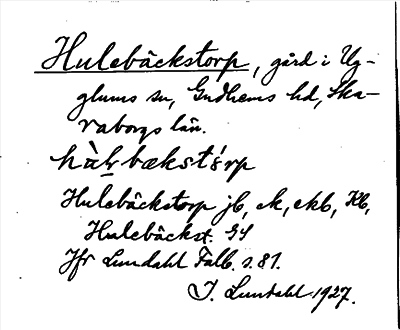 Hulebäckstorp, gård i Ug-
glums sn, Gudhems hd, Ska-
raborgs län.
hàḷbækstórp
Hulebäckstorp jb, ek, ekb, Kb,
Hulebäckst. GS
Jfr Lundahl Falb. s. 81.
I. Lundahl 1927.